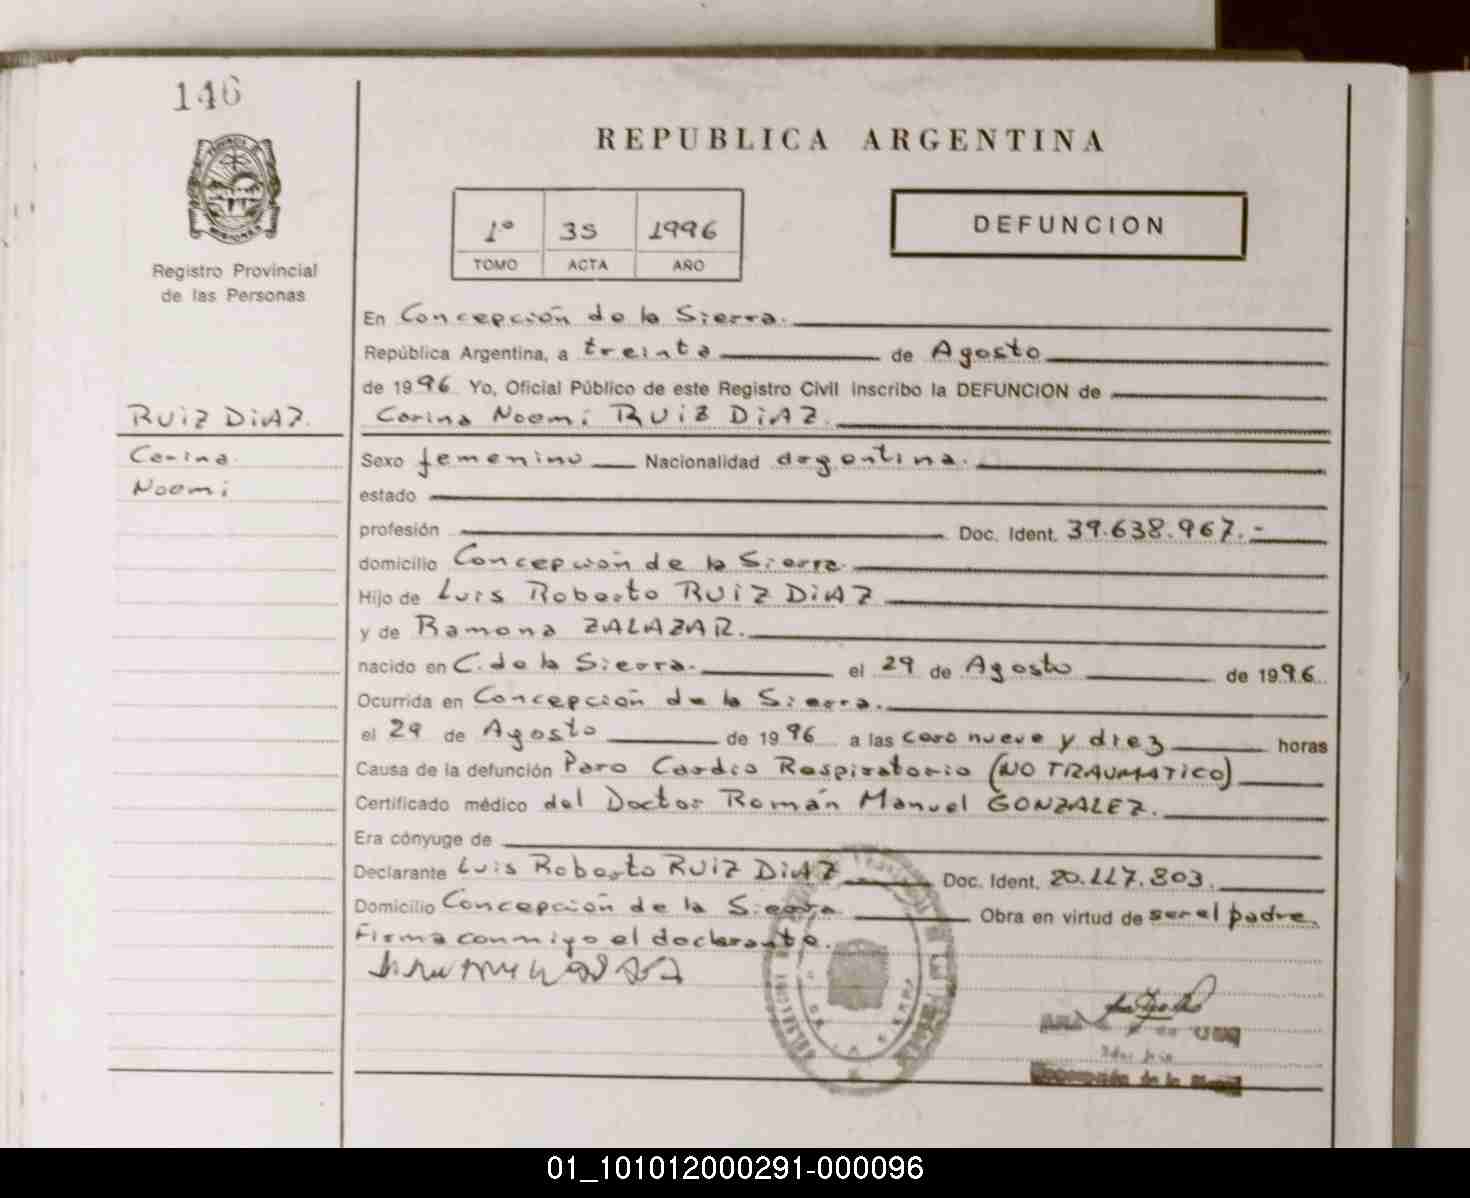 146
REPUBLICA ARGENTINA
1º 35 1996
TOMO ACTA AÑO
DEFUNCION
Registro Provincial
de las Personas
En Concepción de la Sierra.
República Argentina, a treinta de Agosto
de 1996 Yo, Oficial Público de este Registro Civil inscribo la DEFUNCION de
RUIZ DIAZ. Carina Noemi RUIZ DIAZ.
Carina Sexo femenino Nacionalidad argentina.
Noemi estado
profesión Doc. Ident. 39.638.967.-
domicilio Concepción de la Sierra.
Hijo de Luis Roberto RUIZ DIAZ
y de Ramona ZALAZAR.
nacido en C. de la Sierra. el 29 de Agosto de 1996
Ocurrida en Concepción de la Sierra.
el 29 de Agosto de 1996 a las cero nueve y diez horas
Causa de la defunción Paro Cardio Respiratorio (NO TRAUMATICO)
Certificado médico del Doctor Román Manuel GONZALEZ.
Era cónyuge de
Declarante Luis Roberto RUIZ DIAZ Doc. Ident. 20.117.803.
Domicilio Concepción de la Sierra Obra en virtud de ser el padre.
Firma conmigo el declarante.
01_101012000291-000096